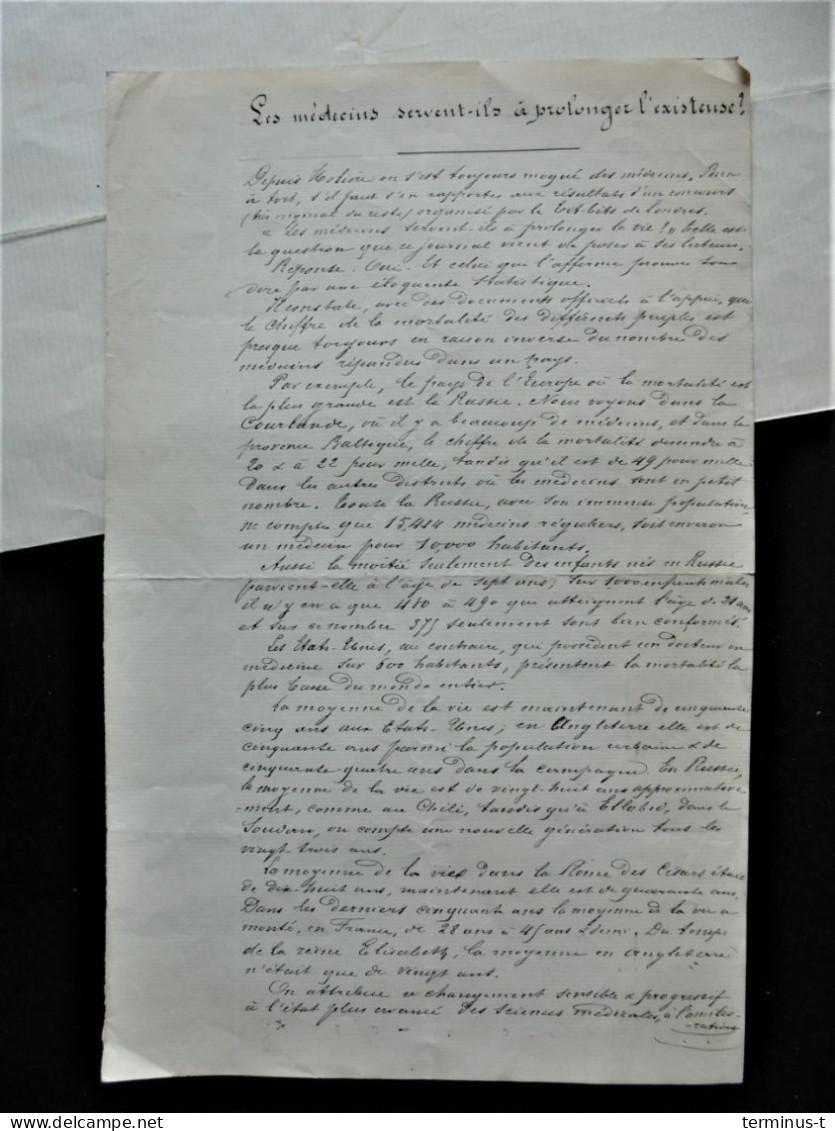 Les médecins servent-ils à prolonger l'existense?
Depuis Molière on s'est toujours moqué des médecins. Bien
à tort, s'il faut s'en rapporter aux résultats d'un concours
(très original du reste) organisé par le Tit-bits de Londres.
« Les médecins servent-ils à prolonger la vie? » telle est
la question que ce journal vient de poser à ses lecteurs.
Réponse: Oui. Et celui qui l'affirme prouve son
dire par une éloquente statistique.
Il constate, avec des documents officiels à l'appui, que
le chiffre de la mortalité des différents peuples est
presque toujours en raison inverse du nombre des
médecins répandus dans un pays.
Par exemple, le pays de l'Europe où la mortalité est
la plus grande est la Russie. Nous voyons dans la
Courlande, où il y a beaucoup de médecins, et dans la
province Baltique, le chiffre de la mortalité descendre à
20 & à 22 pour mille, tandis qu'il est de 49 pour mille
dans les autres districts où les médecins sont en petit
nombre. Toute la Russie, avec son immense population,
ne compte que 15,414 médecins réguliers, soit environ
un médecin pour 10,000 habitants.
Aussi la moitié seulement des enfants nés en Russie
parvient-elle à l'âge de sept ans; sur 1000 enfants mâles
il n'y en a que 480 à 490 qui atteignent l'âge de 21 ans
et sur ce nombre 375 seulement sont bien conformés.
Les Etats-Unis, au contraire, qui possèdent un docteur en
médecine sur 600 habitants, présentent la mortalité la
plus basse du monde entier.
La moyenne de la vie est maintenant de cinquante
cinq ans aux Etats-Unis; en Angleterre elle est de
cinquante ans parmi la population urbaine & de
cinquante-quatre ans dans la campagne. En Russie,
la moyenne de la vie est de vingt-huit ans approximative
-ment, comme au Chili, tandis qu'à Ellobed, dans le
Soudan, on compte une nouvelle génération tous les
vingt trois ans.
La moyenne de la vie dans la Rome des Césars était
de dix-huit ans, maintenant elle est de quarante ans.
Dans les derniers cinquante ans la moyenne de la vie a
monté, en France, de 28 ans à 45 ans & demi. Du temps
de la reine Elisabeth, la moyenne en Angleterre
n'était que de vingt ans.
On attribue ce changement sensible & progressif
à l'état plus avancé des sciences médicales, à l'amélio-
-ration
terminus-t